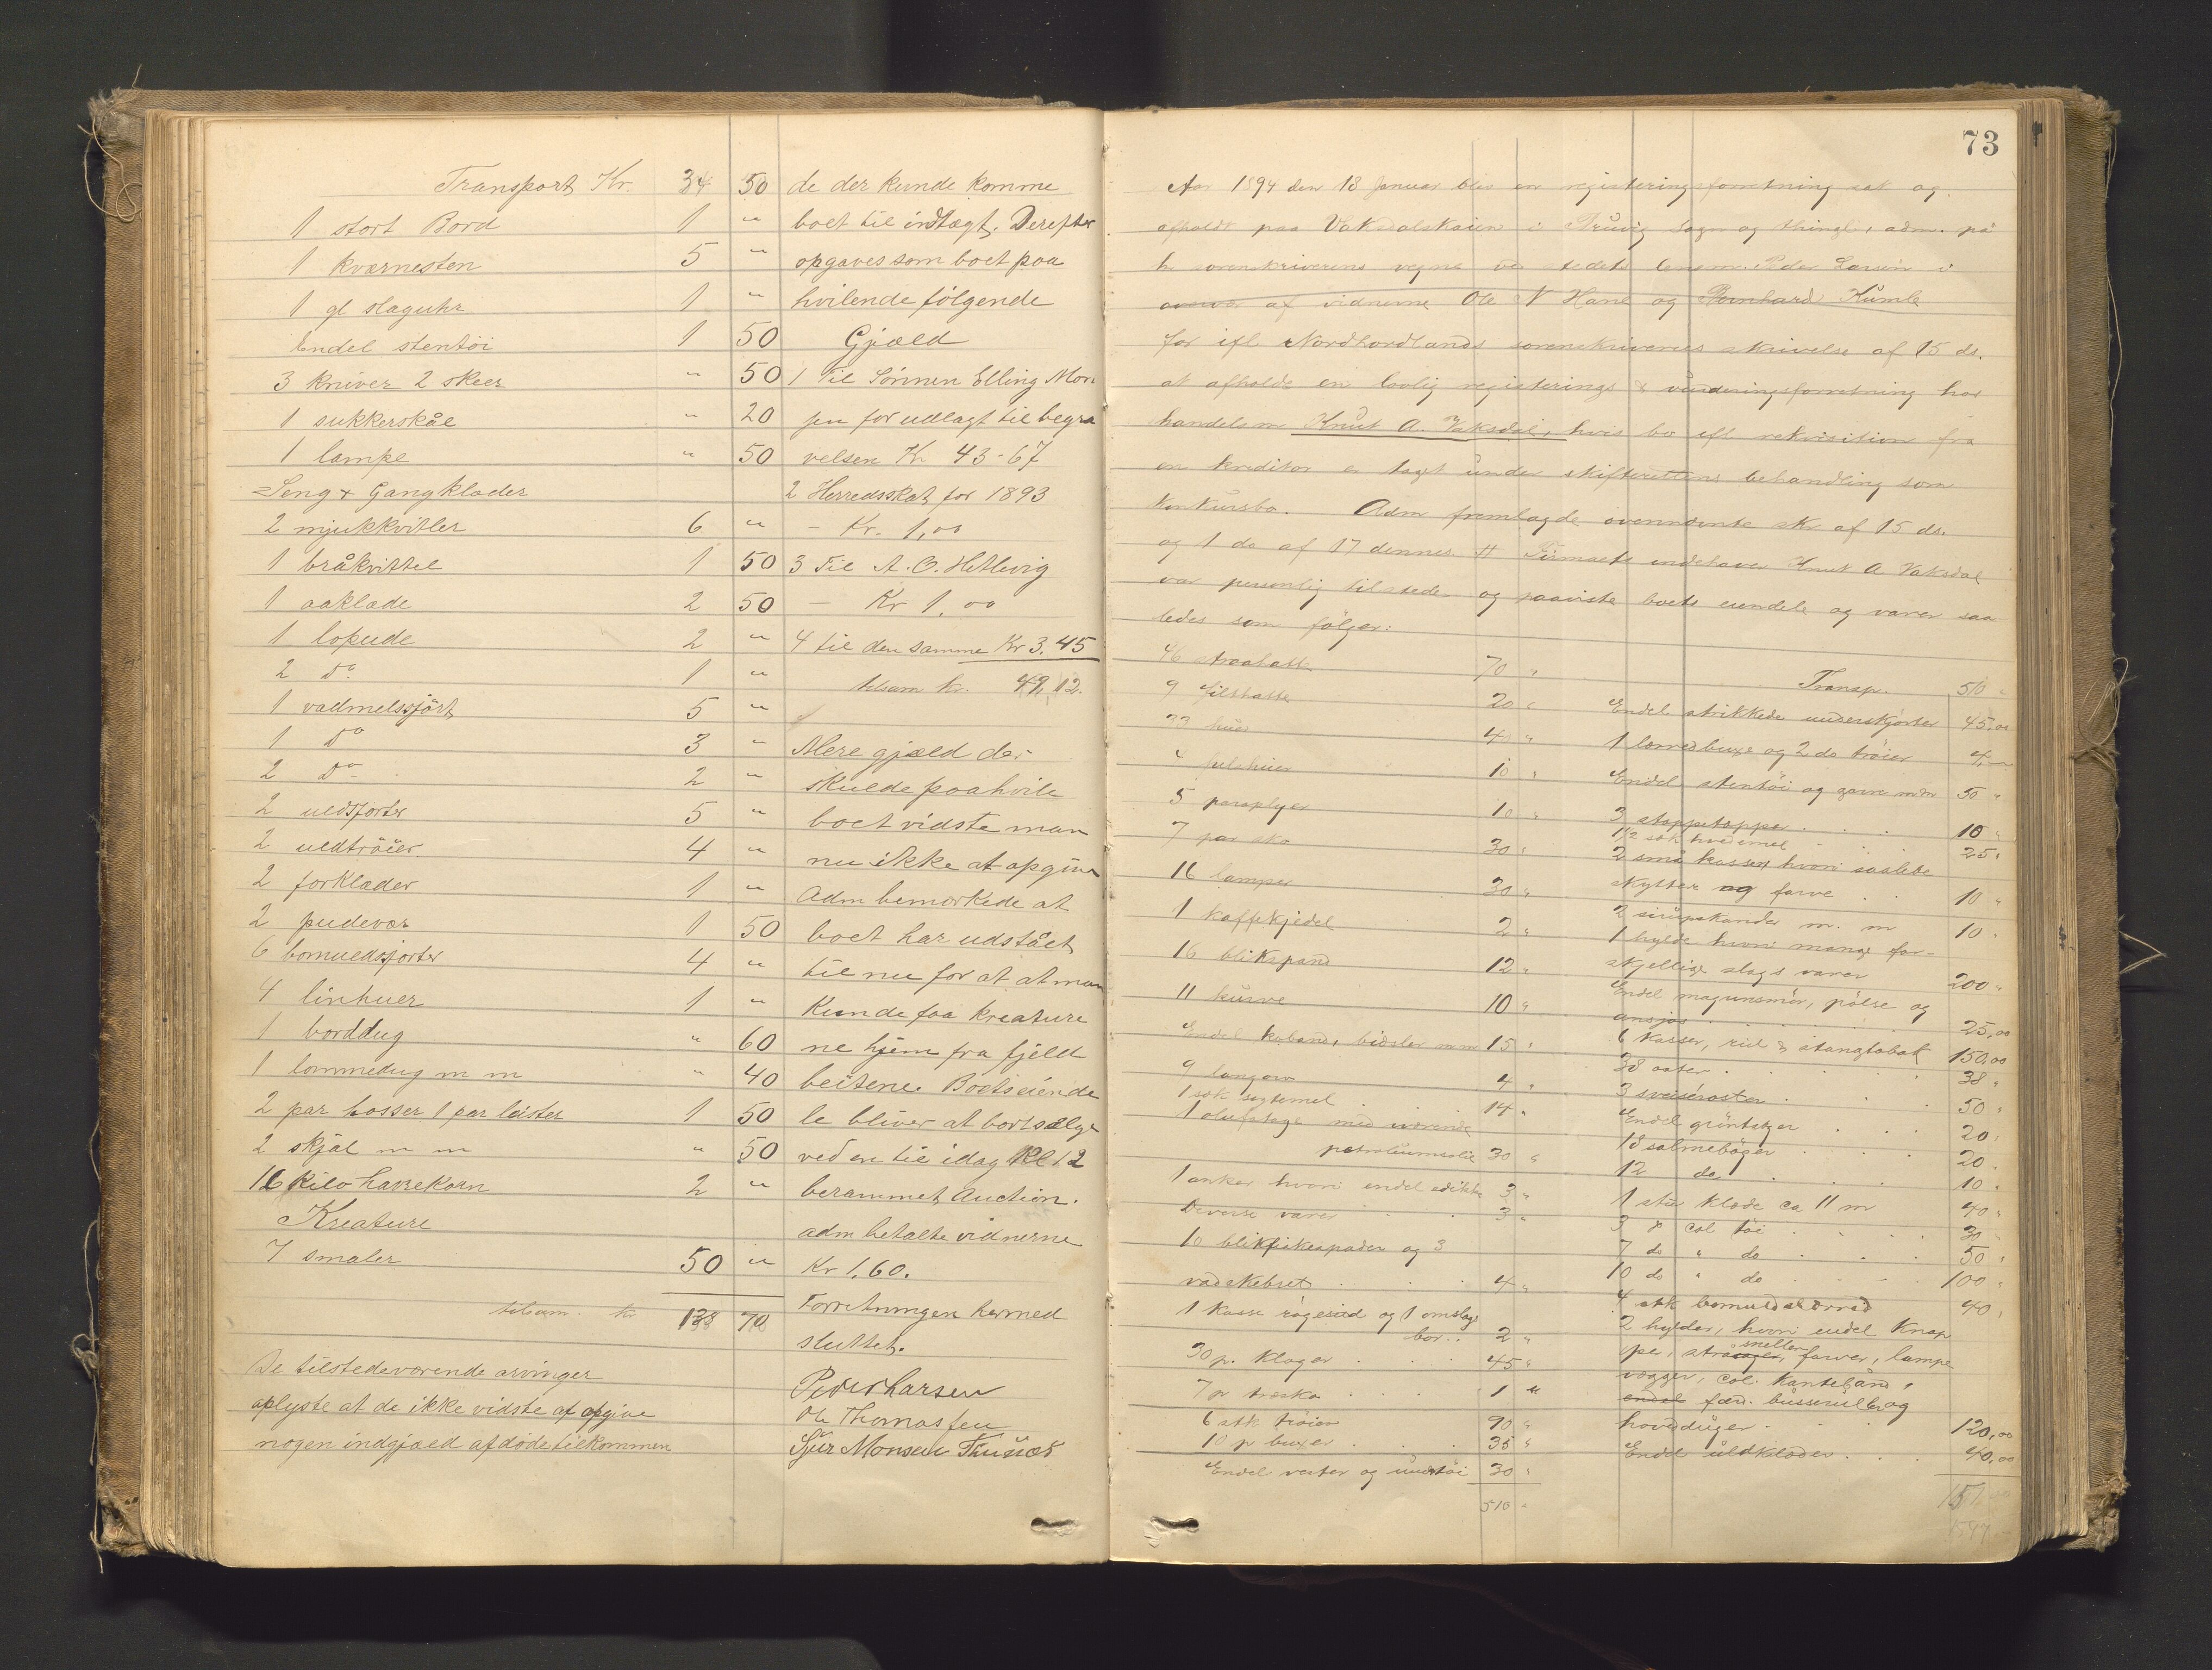 Transport Kr. 34 50
1 stort Bord 1 "
1 kværnesten 5 "
1 gl slaguhr 1 "
Endel stentöi 1 50
3 kniver 2 skeer " 50
1 sukkerskål " 20
1 lampe " 50
Seng & Gangklæder
2 mjukkvitler 6 "
1 bråkvittel 1 50
1 aaklæde 2 50
1 lopude 2 "
2 Do 1 "
1 vadmelssjört 5 "
1 Do 3 "
2 Do 2 "
2 uldsjorter 5 "
2 uldtröier 4 "
2 forklæder 1 "
2 pudevær 1 50
6 bomuldssjorter 4 "
4 linhuer 1 "
1 borddug " 60
1 lommedug m m " 40
2 par hosser 1 par leister 1 50
2 skjal m m " 50
16 kilo havrekorn 2 "
Kreature
7 smaler 50 "
tilsam. kr 138 70
De tilstedeværende arvinger
oplyste at de ikke vidste at opgive
nogen indgjæld afdöde tilkommen
de der kunde komme
boet til indtægt. Derefter
opgaves som boet paa
hvilende fölgende
Gjæld
1 Til Sönnen Elling Mon
sen for udlagt til begra
velsen Kr 43-67
2 Herredsskat for 1893
- Kr. 1,00
3 Til A. O. Hetlevig
- Kr 1,00
4 til den samme Kr 3.45
tilsam kr. 49,12.
Mere gjæld der
skulde paahvile
boet vidste man
nu ikke at opgive
Adm bemærkede at
boet har udstået
til nu for at at man
kunde faa kreature
ne hjem fra fjeld
beitene. Boets eiende
le bliver at bortsælge
ved en til idag Kl 12
berammet Auction.
adm betalte vidnerne
Kr 1,60.
Forretningen hermed
sluttet.
Peder Larsen
Ole Thomassen
Sjur Monsen Thunæs
73
Aar 1894 den 18 Januar blev en registeringsforretning sat og
afholdt paa Vaksdalskaien i Bruvig Sogn og thingl, adm. på
hr sorenskriverens vegne ved stedets lensm. Peder Larsen i
overvær af vidnerne Ole N Hane og Bernhard Kumle
for ifl Nordhordlands sorenskriveries skrivelse af 15 ds.
at afholde en lovlig registerings & vurderingsforretning hos
handelsm Knut A. Vaksdal, hvis bo ifl rekvisition fra
en kreditor er taget under skifterettens behandling som
konkursbo. Adm fremlagde ovennævnte skr af 15 ds.
og 1 do af 17 dennes # Firmaets indehaver Knut A Vaksdal
var personlig tilstede og paaviste boets eiendele og varer saa
ledes som fölger:
46 straahatte 70 "
9 filthatte 20 "
33 huer 40 "
10 "
5 paraplyer 10 "
7 par sko 30 "
16 lamper 30 "
1 kaffekjedel 2 "
16 blikspand 12 "
11 kurve 10 "
Endel koband, bidsler m m 15 "
9 langorv 4 "
1 sæk sigtemel 14 "
1 oliefatage med værende
petroliumsolie 30 "
1 anker hvori endel edikke 3 "
Diverse varer 3 "
10 blikfiskespader og 3
vadskebret 4 "
1 kasse rögesild og 1 omslags
bor. 2 "
30 p. klager 45 "
7 pr træsko 1 "
6 stk tröier 90 "
10 p buxer 35 "
Endel vester og undertöi 30 "
510 "
Transp. 510 "
Endel strikkede underskjorter 45,00
1 lærredbuxe og 2 do tröier 4,
Endel stentöi og garn m m 50 "
3 stoppetopper 10 "
1/2 sæk hvedemel 25 "
2 små kasser, hvori saalede
skytter og farve 10 "
2 sirupskander m. m 10 "
1 hylde hvori mange for-
skjellige slags varer 200 "
Endel magunsmör, pölse og
ansjos 25,00
6 kasser, rul & stangtobak 150,00
38 oster 38 "
3 sveiserøster 50 "
Endel gröntøier 20 "
18 salmebøger 20 "
12 do 10 "
1 stu klæde ca 11 m 40 "
3 " col töi 30 "
7 do " do 50 "
10 do " do 100 "
4 stk bomuldslærred 40 "
2 hylder, hvori endel knap
per, sneller, farver, lampe
vægger, col. kantebånd,
endel færd. busseruller og
hoveduger 120,00
Endel uldklæder 40,00